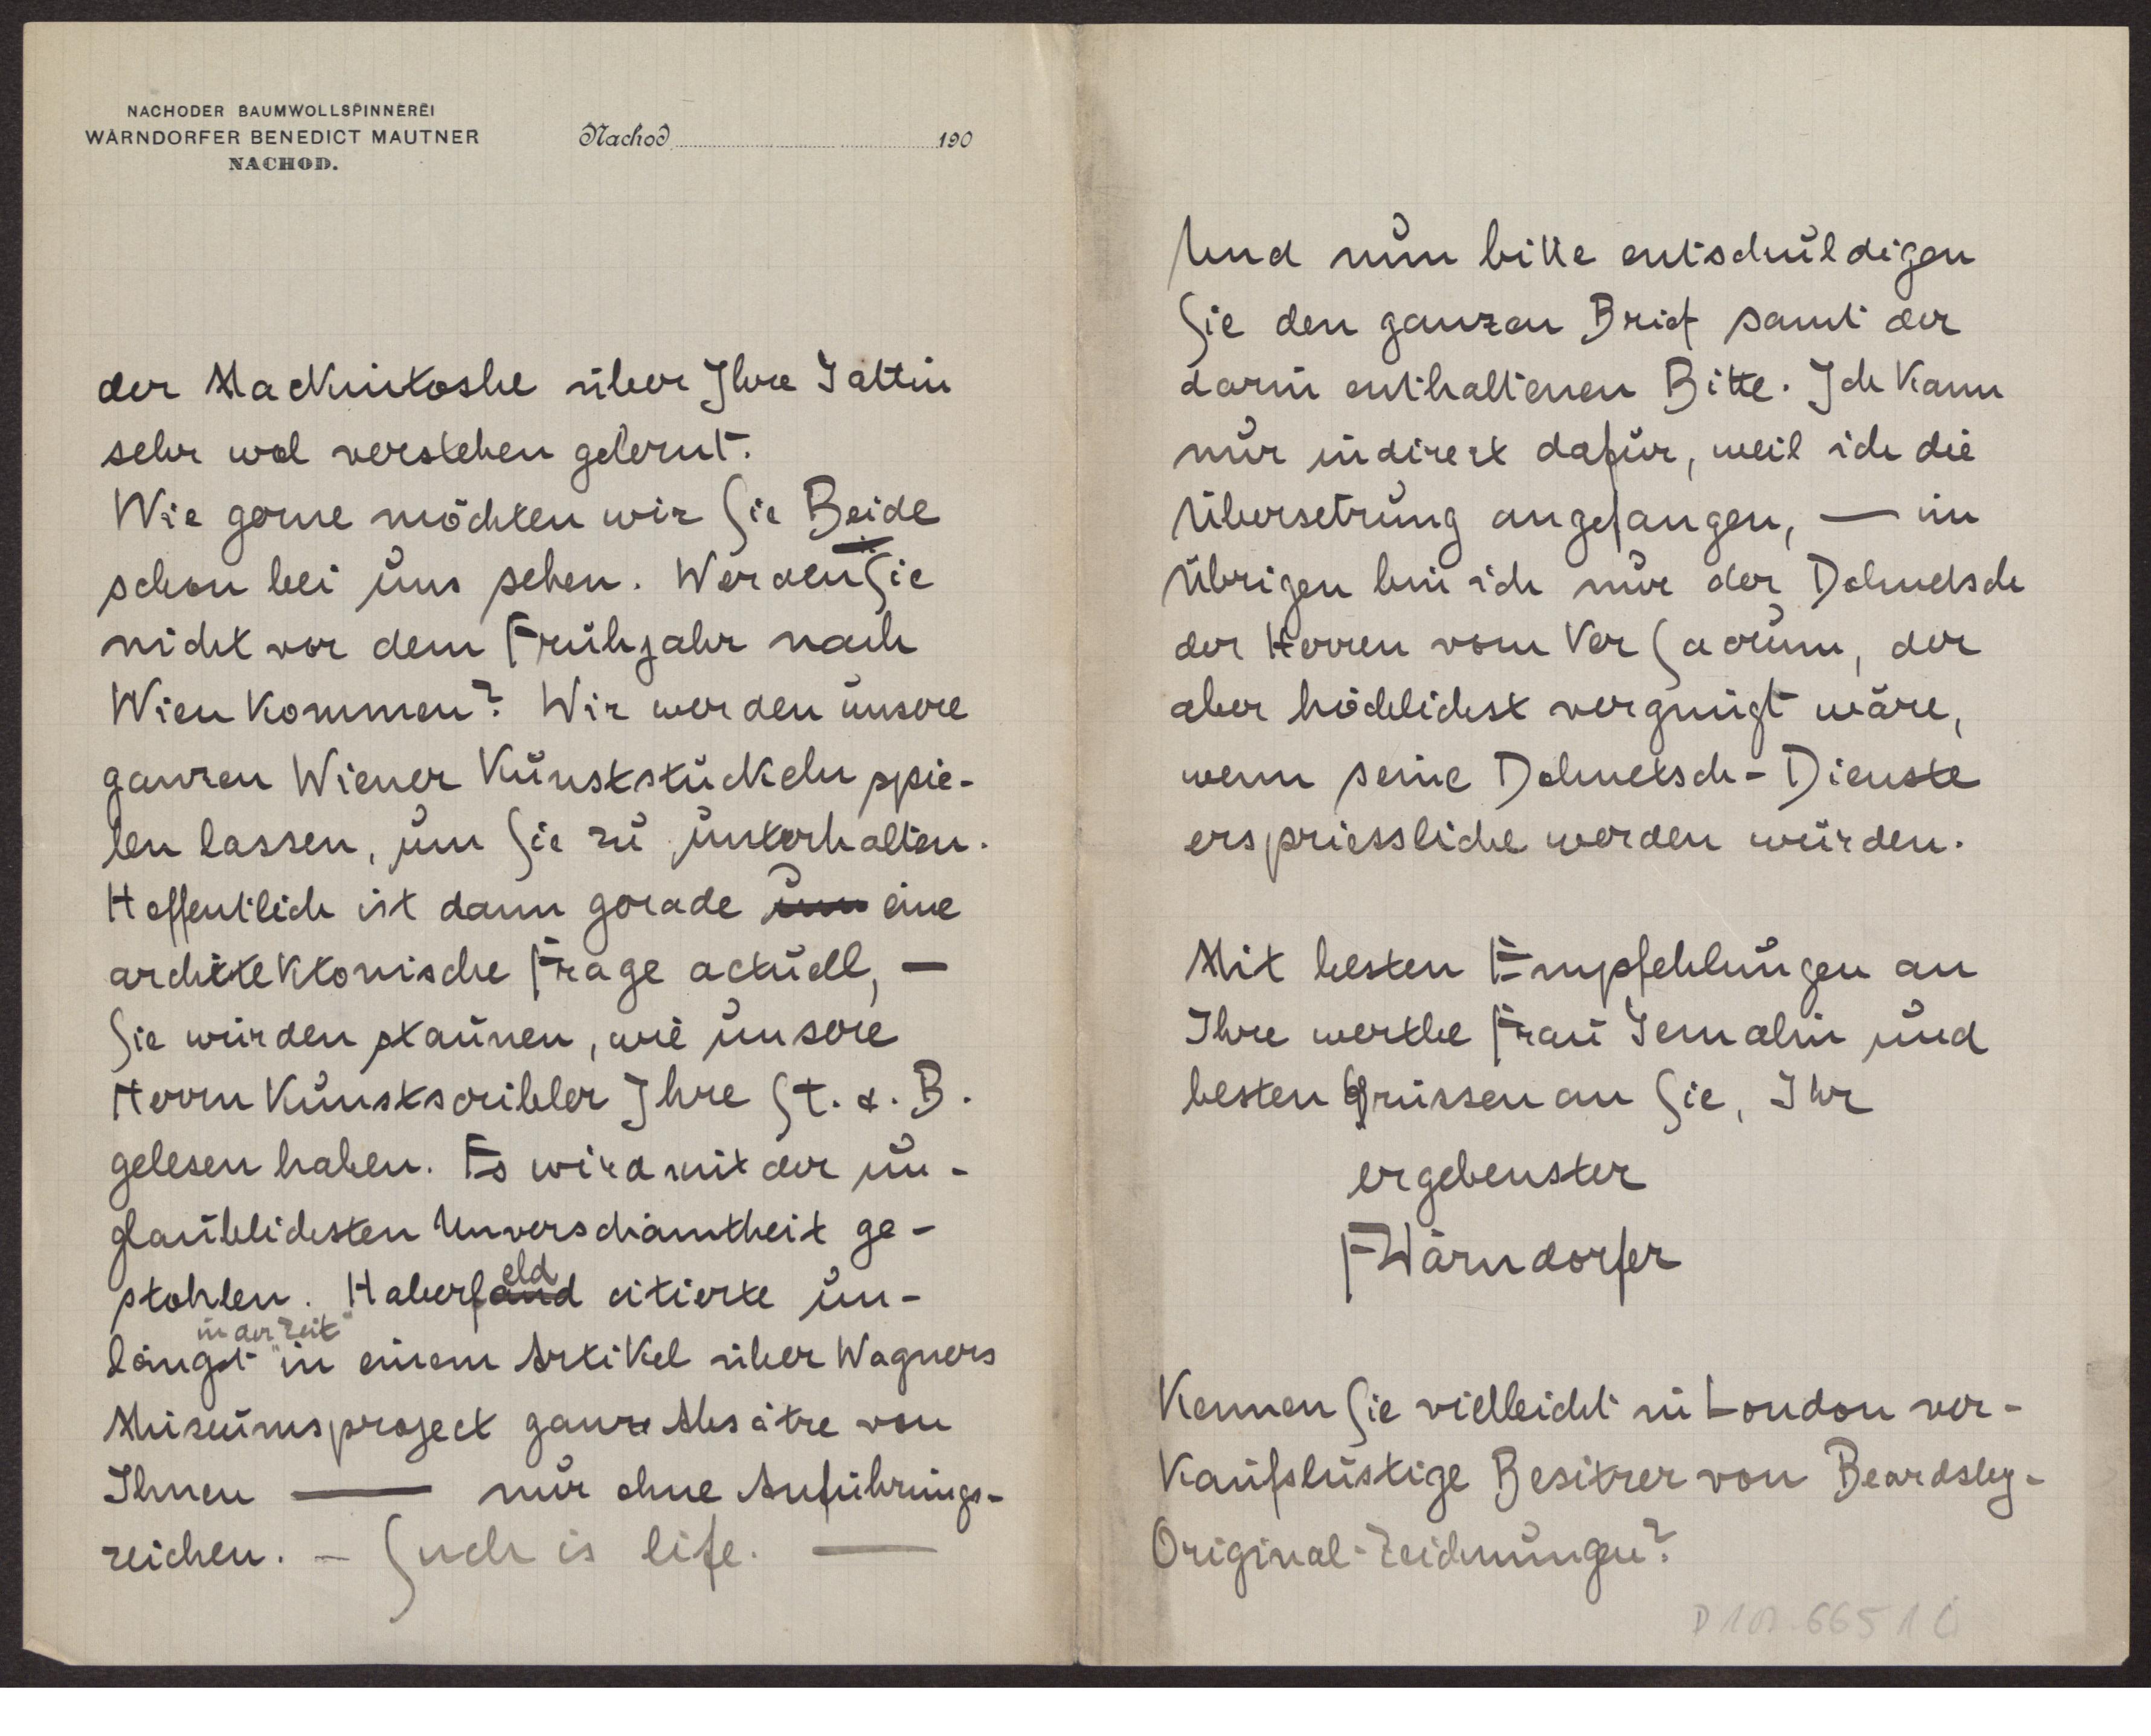 NACHODER BAUMWOLLSPINNEREI
WÄRNDORFER BENEDICT MAUTNER
NACHOD.
Nachod 190
der Mackintoshe über Ihre Gattin
sehr wol verstehen gelernt.
Wie gerne möchten wir Sie Beide
schon bei uns sehen. Werden Sie
nicht vor dem Frühjahr nach
Wien kommen? Wir werden unsere
ganzen Wiener Kunststückeln spie-
len lassen, um Sie zu unterhalten.
Hoffentlich ist dann gerade um eine
architektonische Frage actuell, —
Sie würden staunen, wie unsere
Herrn Kunstscribler Ihre St. & B.
gelesen haben. Es wird mit der un-
glaublichsten Unverschämtheit ge-
stohlen. Haberfand eld citierte un-
längst in der Zeit in einem Artikel über Wagners
Museumsproject ganze Absätze von
Ihnen — nur ohne Anführungs-
zeichen. – Such is life. —
Und nun bitte entschuldigen
Sie den ganzen Brief samt der
darin enthaltenen Bitte. Ich kann
nur indirekt dafür, weil ich die
Übersetzung angefangen, — im
Übrigen bin ich nur der Dolmetsch
der Herren vom Ver Sacrum, der
aber höchlichst vergnügt wäre,
wenn seine Dolmetsch-Dienste
erspriessliche werden würden.
Mit besten Empfehlungen an
Ihre werthe Frau Gemalin und
besten Grüssen an Sie, Ihr
ergebenster
FWärndorfer
Kennen Sie vielleicht in London ver-
kaufslustige Besitzer von Beardsley-
Original-Zeichnungen?